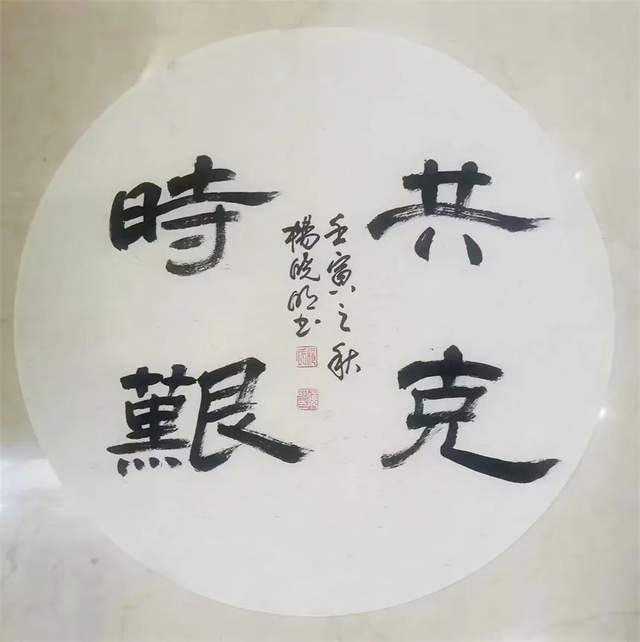 共克
時艱
壬寅之秋
楊曉明书